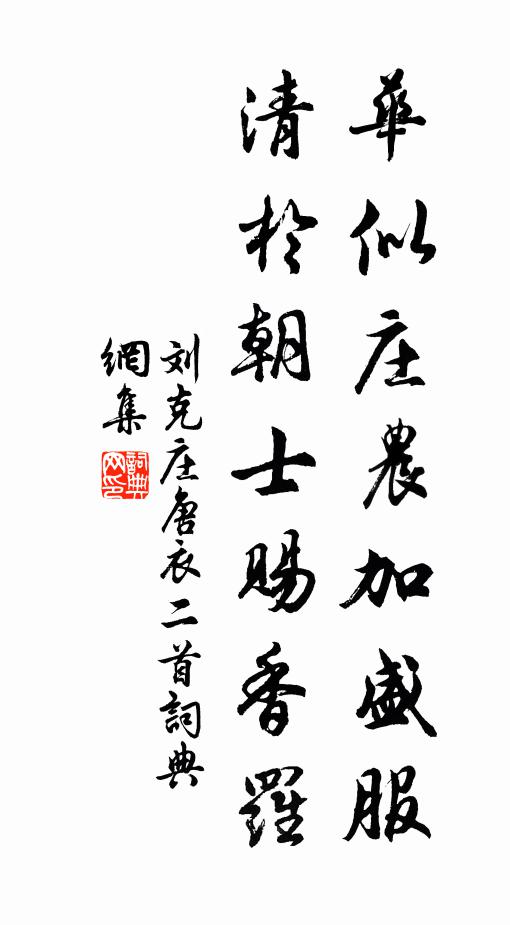 華似庄農加盛服
清於朝士賜香羅
刘克庄唐衣二首詞典
網集
詞典网印